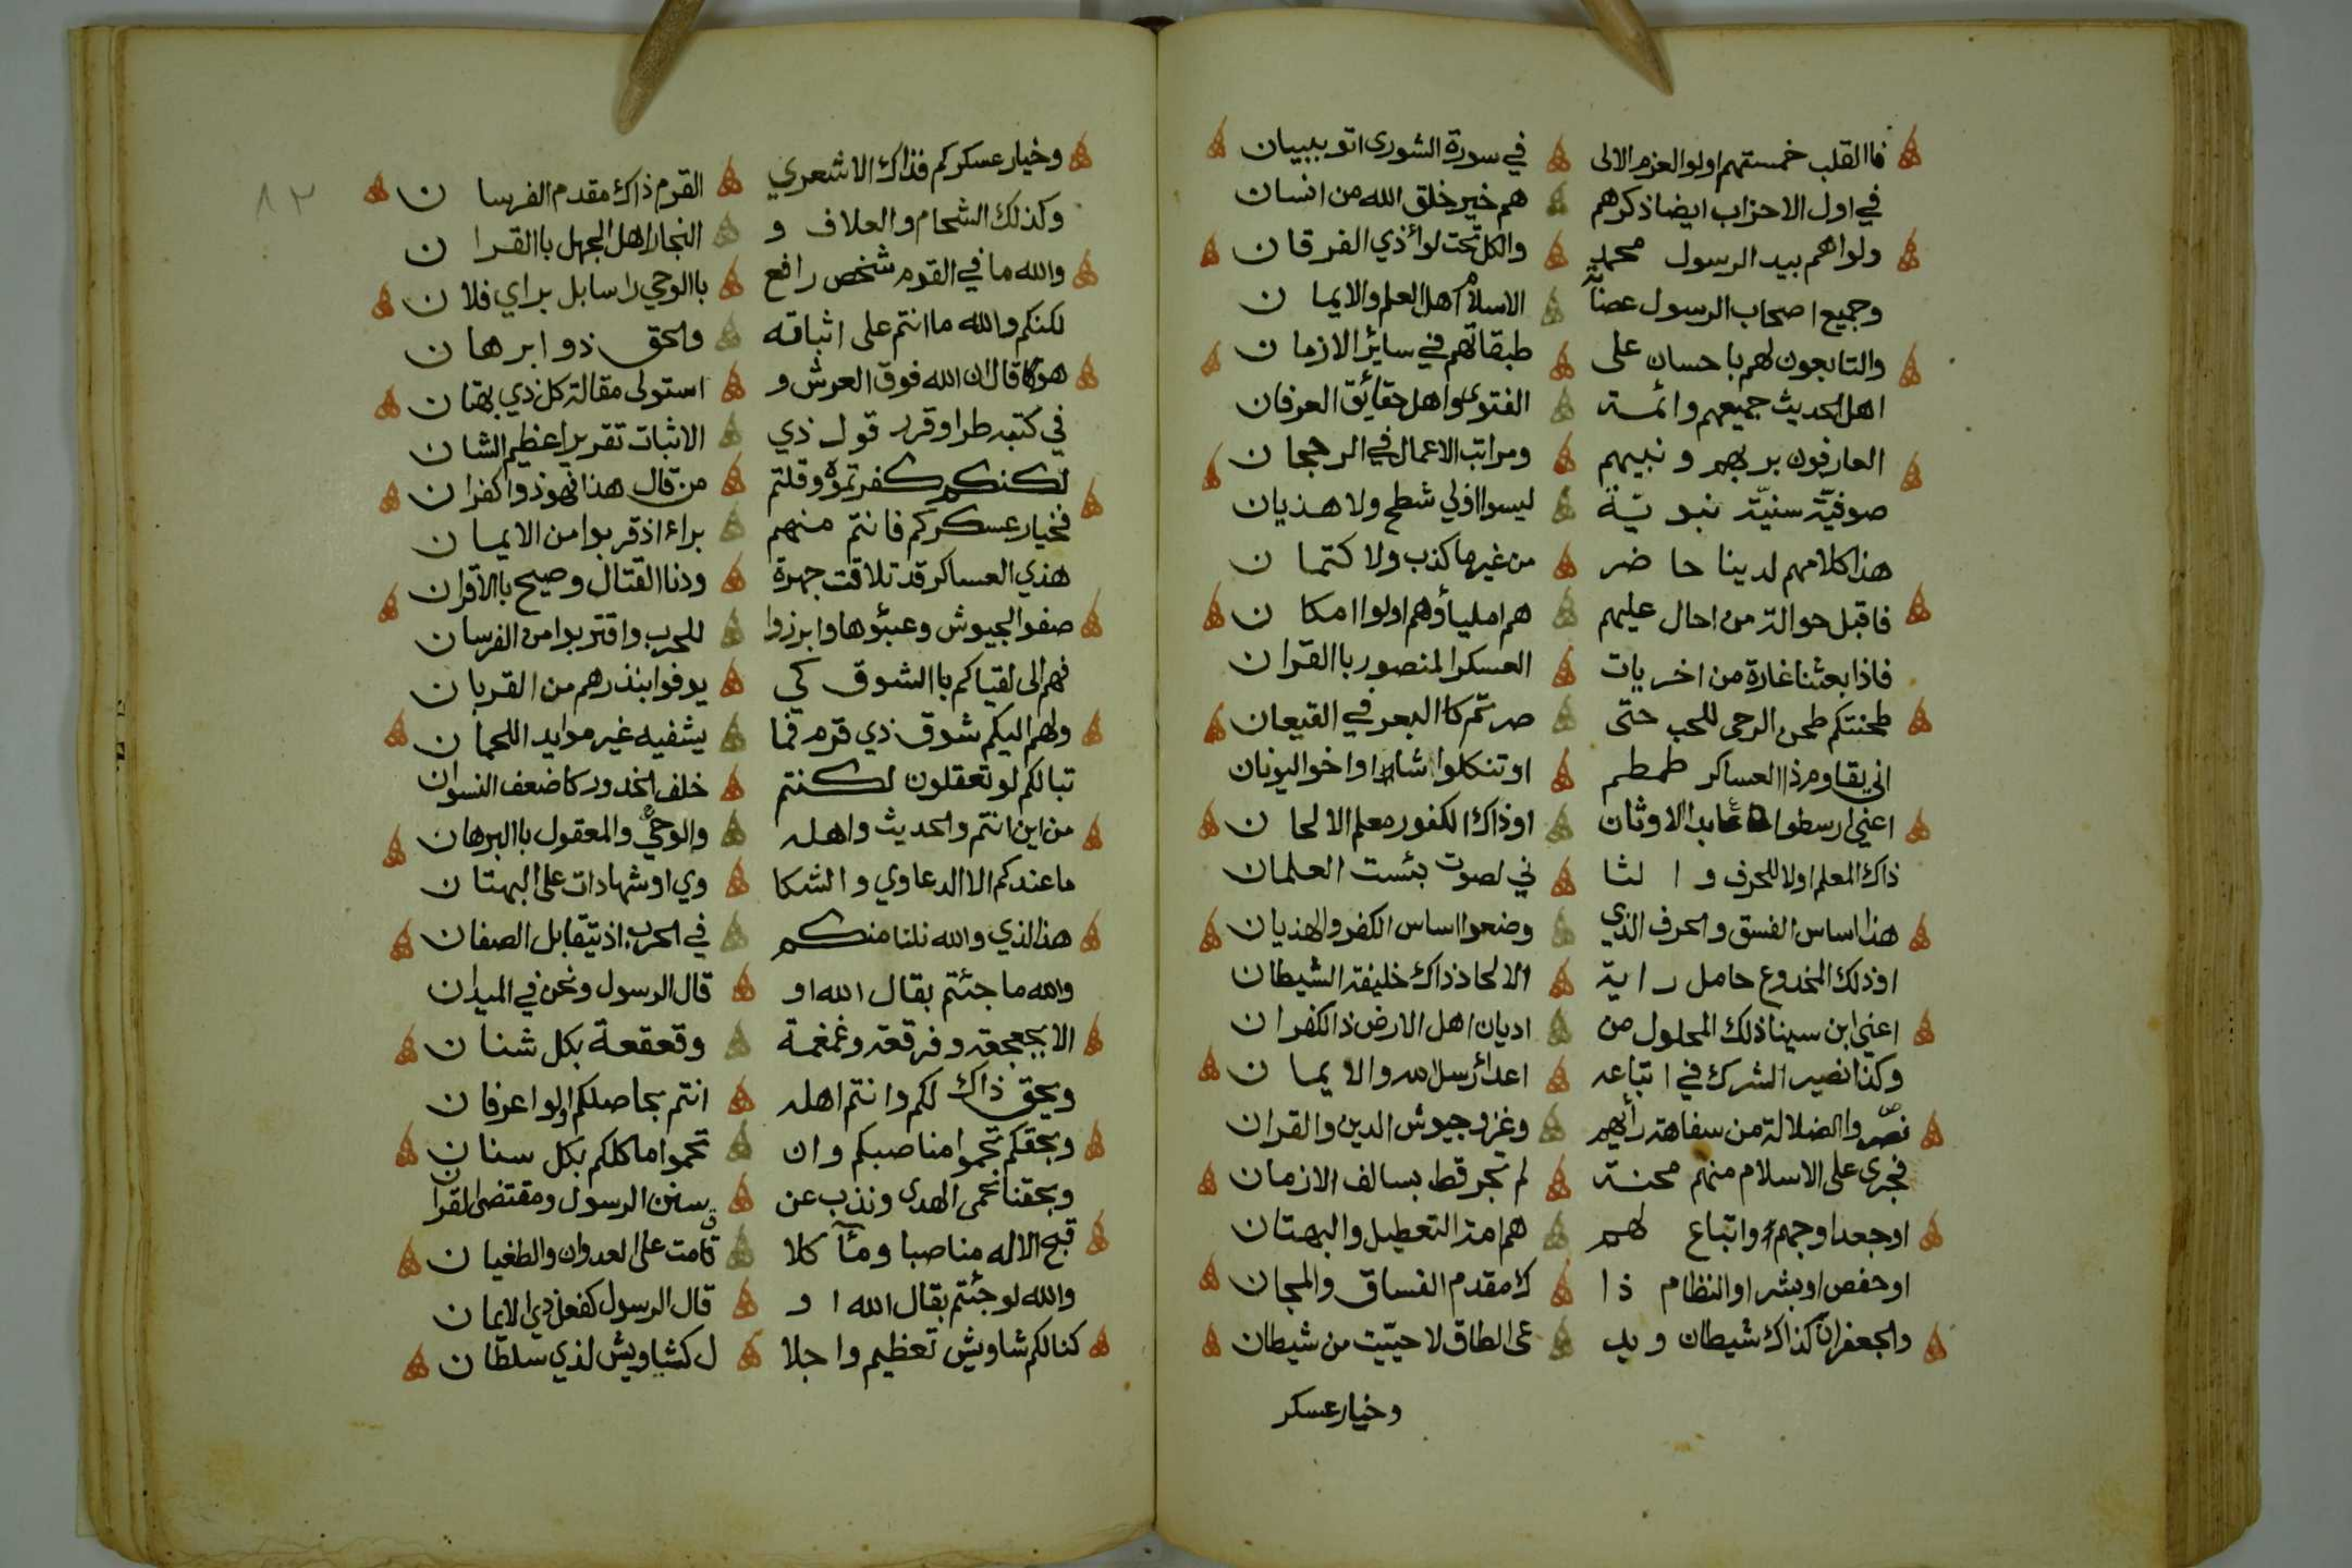 فاالقلب خمستهم اولوا العزم الالى في سورة الشورى اتو ببيان
في اول الاحزاب ايضا ذكرهم هم خير خلق الله من انسان
ولواهم بيد الرسول محمد والكل تحت لواء ذي الفرقان
وجميع اصحاب الرسول عصابة الاسلام اهل العلم والايمان
والتابعون لهم باحسان على طبقاتهم في سائر الازمان
اهل الحديث جميعهم وائمة الفتوى واهل حقائق العرفان
العارفون بربهم ونبيهم ومراتب الاعمال في الرجحان
صوفية سنية نبوية ليسوا اولي شطح ولا هذيان
هذا كلامهم لدينا حاضر من غير ما كذب ولا كتمان
فاقبل حوالة من احال عليهم هم املياؤهم اولوا امكان
فاذا بعثنا غارة من اخريات العسكر المنصور باالقران
طحنتكم طحن الرحى للحب حتى صرتم كا البعر في القيعان
اني يقاوم ذا العساكر طمطم او تنكلوشا او اخو اليونان
اعني ارسطوا عابد الاوثان او ذاك الكفور معلم الالحان
ذاك المعلم اولا للحرف والثا ني لصوت بئست العلمان
هذا اساس الفسق والحرف الذي وضعوا اساس الكفر والهذيان
او ذلك المخدوع حامل راية الالحاد ذاك خليفة الشيطان
اعني ابن سينا ذلك المحلول من اديان اهل الارض ذا الكفران
وكذا نصير الشرك في اتباعه اعداء رسل الله والايمان
نصروا الضلالة من سفاهة رأيهم وغزو جيوش الدين والقران
فجرى على الاسلام منهم محنة لم تجر قط بسالف الازمان
او جعد او جهم واتباع لهم هم امة التعطيل والبهتان
او حفص او بشر او النظام ذا ك مقدم الفساق والمجان
والجعفران كذاك شيطان ويد عى الطاق لا حييت من شيطان
وخيار عسكر
٨٢
وخيار عسكركم فذاك الاشعري القرم ذاك مقدم الفرسان
وكذلك الشحام والعلاف و النجار اهل الجهل باالقران
والله ما في القوم شخص رافع باالوحي راسا بل براي فلان
لكنكم والله ما انتم على اثباته والحق ذو ابرهان
هو قال ان الله فوق العرش و استولى مقالة كل ذي بهتان
في كتبه طرا وقرر قول ذي الاثبات تقريرا عظيم الشان
لكنكم كفرتموه وقلتم من قال هذا فهو ذوا كفران
فخيار عسكركم فانتم منهم براء اذ قربوا من الايمان
هذي العساكر قد تلاقت جهرة ودنا القتال وصيح باالاقران
صفوا الجيوش وعبئوها وابرزوا للحرب واقتربوا من الفرسان
فهم الى لقياكم باالشوق كي يوفوا بنذرهم من القربان
ولهم اليكم شوق ذي قرم فما يشفيه غير موايد اللحمان
تبا لكم لو تعقلون لكنتم خلف الخدور كاضعف النسوان
من اين انتم والحديث واهله والوحي والمعقول باالبرهان
ما عندكم الا الدعاوي والشكا وي او شهادات على البهتان
هذا الذي والله نلنا منكم في الحرب اذ يتقابل الصفان
والله ما جئتم بقال الله او قال الرسول ونحن في الميدان
الا بجعجعة وفرقعة وغمغمة وقعقعة بكل شنان
ويحق ذاك لكم وانتم اهله انتم بحاصلكم اولوا عرفان
وبحقكم تحموا مناصبكم وان تحموا ماكلكم بكل سنان
وبحقنا نحمي الهدى ونذب عن سنن الرسول ومقتضى القران
قبح الاله مناصبا ومآكلا قامت على العدوان والطغيان
والله لو جئتم بقال الله او قال الرسول كفعل ذي الايمان
كنا لكم شاويش تعظيم واجلا ل كشاويش لذي سلطان